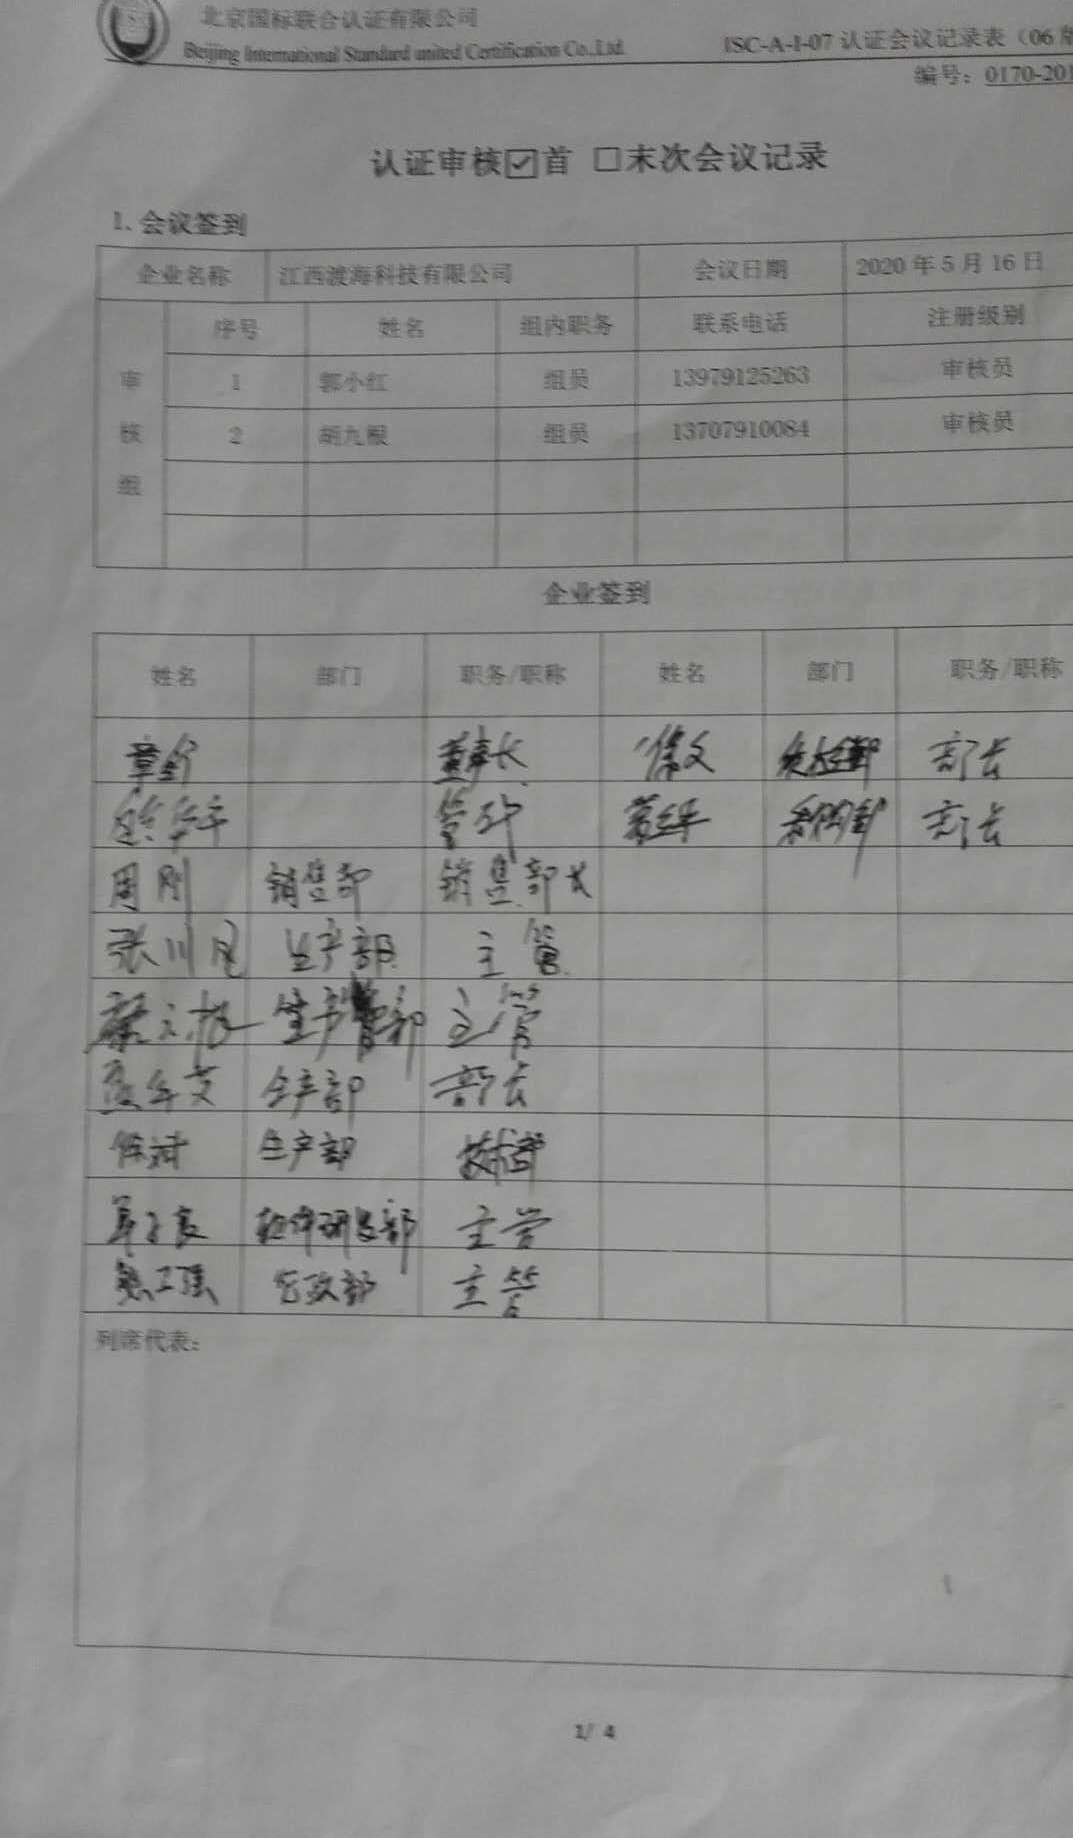 北京国标联合认证有限公司
Beijing International Standard united Certification Co.,Ltd.
ISC-A-I-07 认证会议记录表（06
编号：0170-201
认证审核☑首 □末次会议记录
1. 会议签到
企业名称 江西渡海科技有限公司 会议日期 2020 年 5 月 16 日
审核组 序号 姓名 组内职务 联系电话 注册级别
1 郭小红 组员 13979125263 审核员
2 胡九根 组员 13707910084 审核员
企业签到
姓名 部门 职务/职称 姓名 部门 职务/职称
董事长 部长
管代 采购部 部长
周刚 销售部 销售部长
张川 生产部 主管
生产 部 主管
生产部 部长
生产部 技术部
软件研发部 主管
行政部 主管
列席代表：
1/ 4